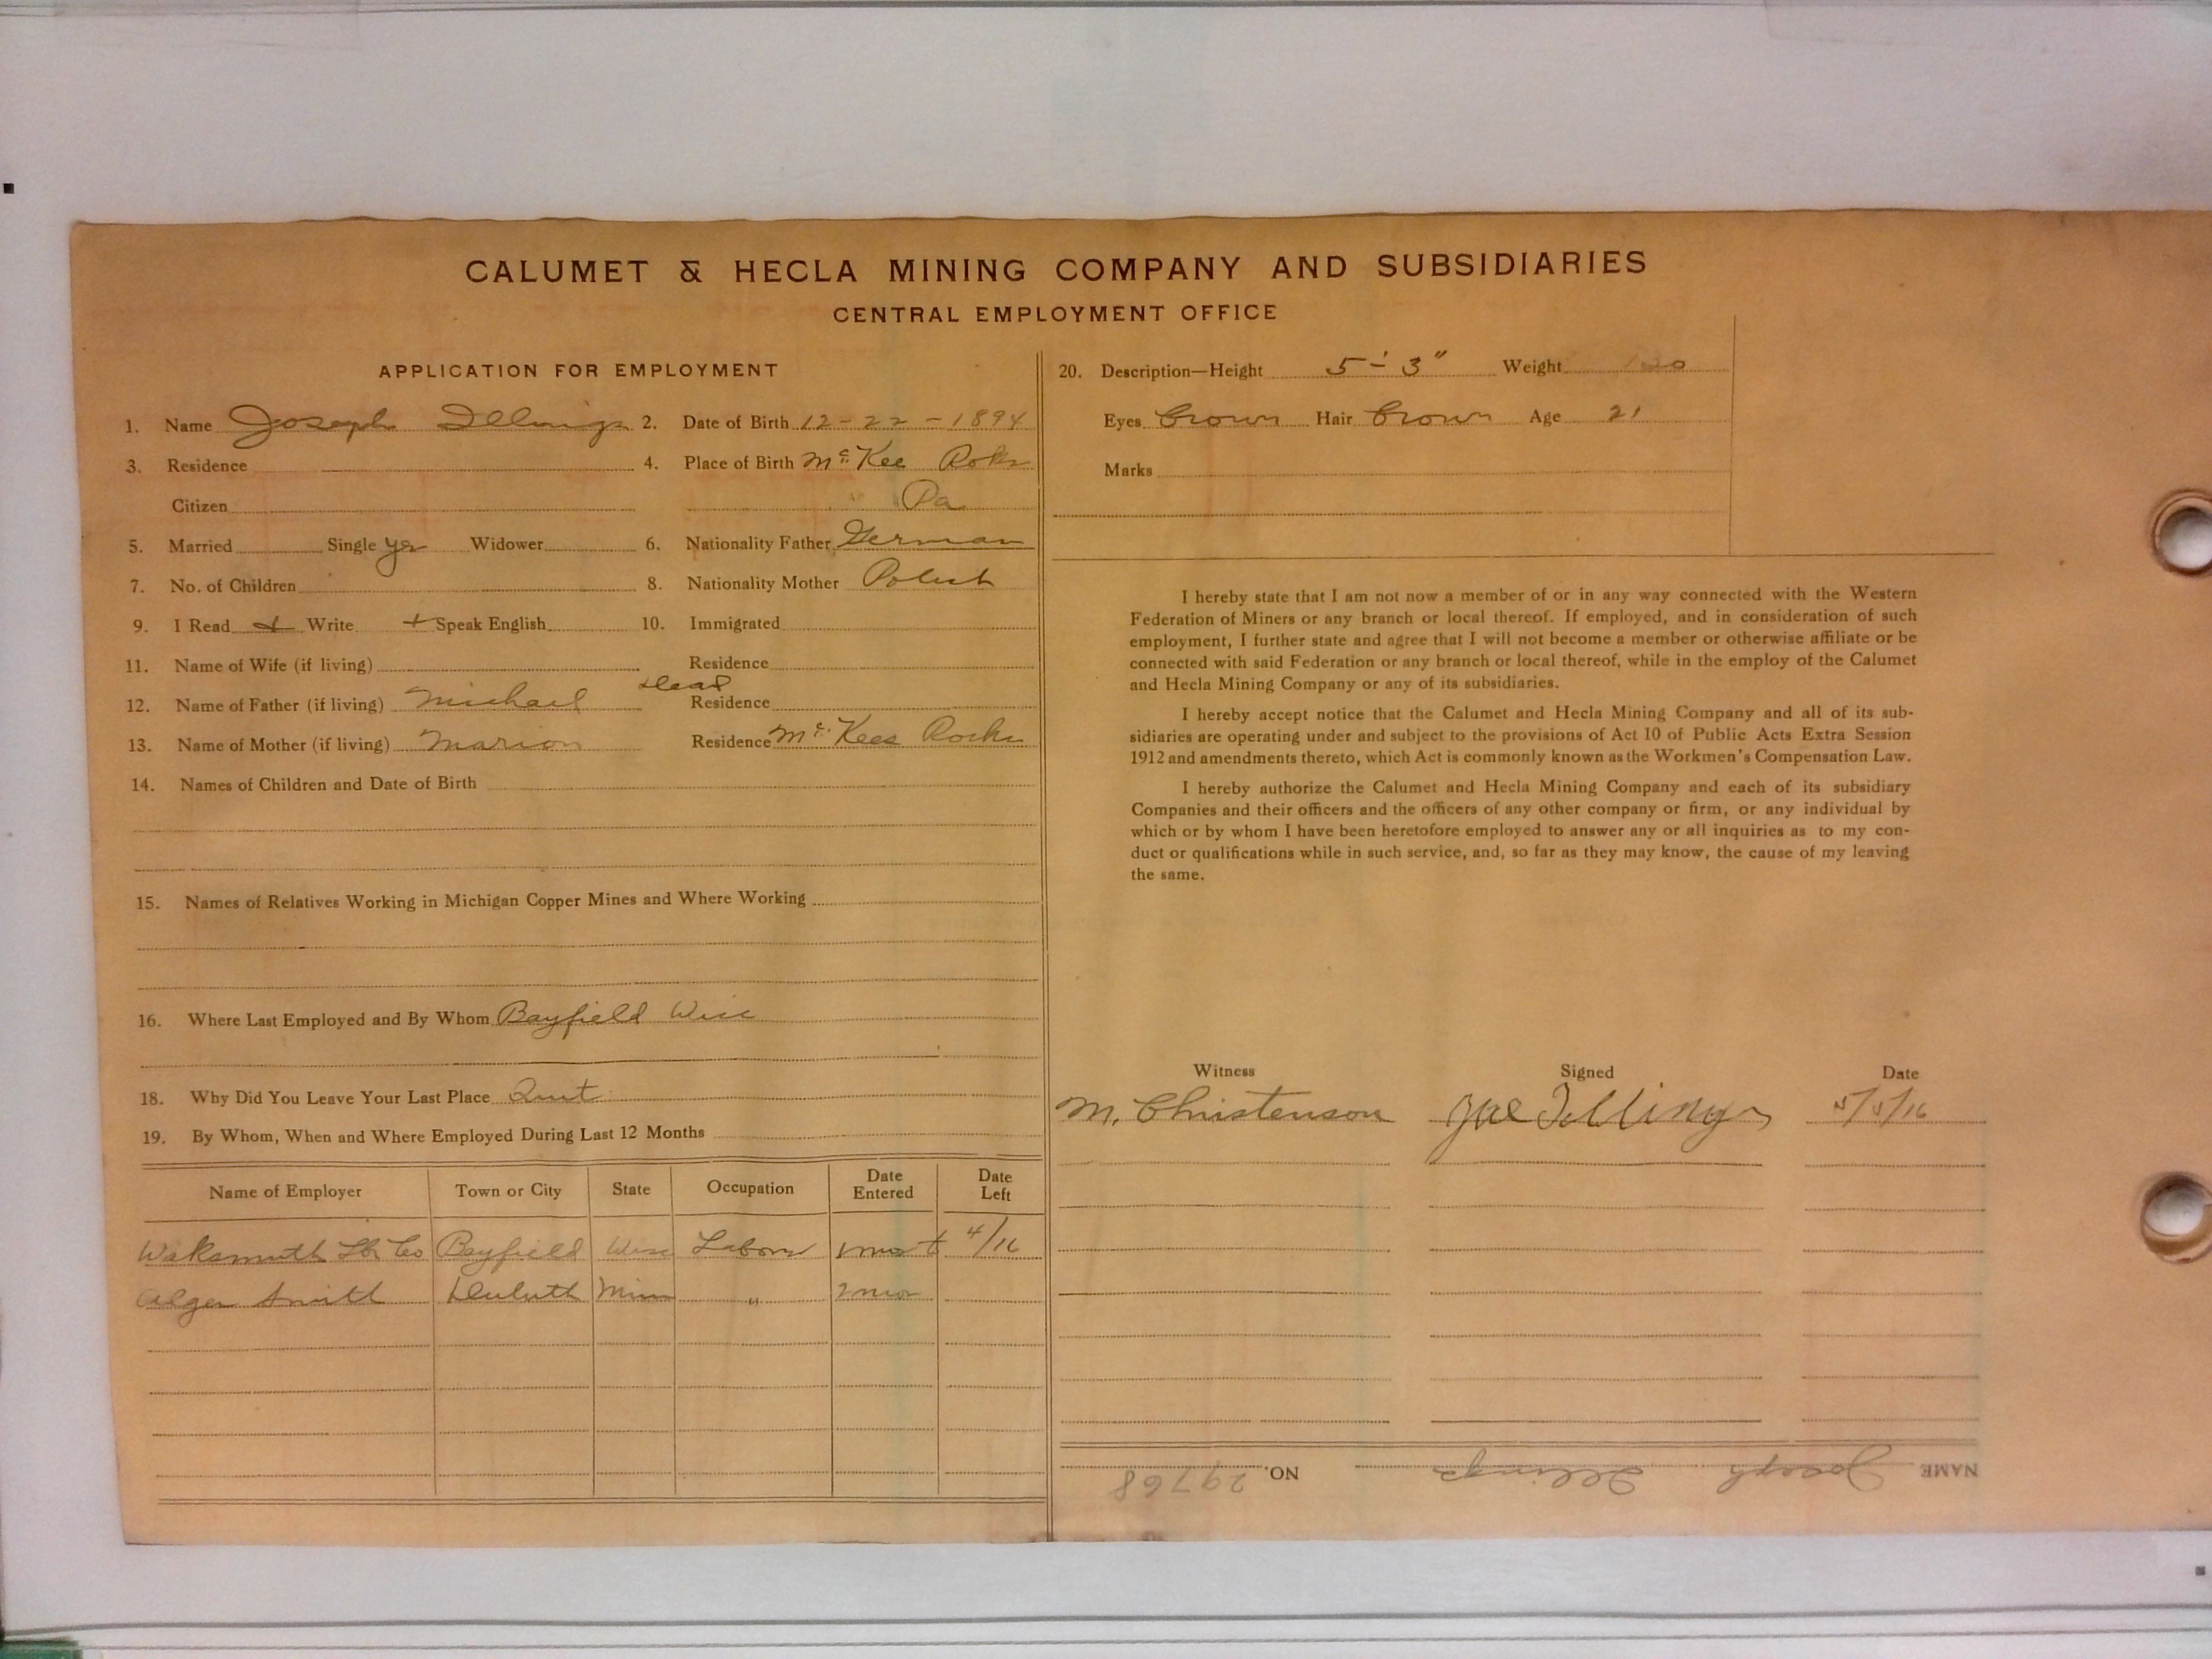 CALUMET & HECLA MINING COMPANY AND SUBSIDIARIES
CENTRAL EMPLOYMENT OFFICE
APPLICATION FOR EMPLOYMENT
1. Name Joseph 2. Date of Birth 12-22-1894
3. Residence 4. Place of Birth McKee Roks
Citizen Pa
5. Married Single yes Widower 6. Nationality Father German
7. No. of Children 8. Nationality Mother Polish
9. I Read + Write + Speak English 10. Immigrated
11. Name of Wife (if living) Residence
12. Name of Father (if living) Michael Dead Residence
13. Name of Mother (if living) Marion Residence McKees Rocks
14. Names of Children and Date of Birth
15. Names of Relatives Working in Michigan Copper Mines and Where Working
16. Where Last Employed and By Whom Bayfield Wisc
18. Why Did You Leave Your Last Place Quit
19. By Whom, When and Where Employed During Last 12 Months
Name of Employer Town or City State Occupation Date Entered Date Left
Waksmuth Lbr Co Bayfield Wisc Labor 1 mo 4/16
Alger Smith Duluth Minn " 2 mos
20. Description—Height 5-'3" Weight
Eyes Brown Hair Brown Age 21
Marks
I hereby state that I am not now a member of or in any way connected with the Western
Federation of Miners or any branch or local thereof. If employed, and in consideration of such
employment, I further state and agree that I will not become a member or otherwise affiliate or be
connected with said Federation or any branch or local thereof, while in the employ of the Calumet
and Hecla Mining Company or any of its subsidiaries.
I hereby accept notice that the Calumet and Hecla Mining Company and all of its sub-
sidiaries are operating under and subject to the provisions of Act 10 of Public Acts Extra Session
1912 and amendments thereto, which Act is commonly known as the Workmen's Compensation Law.
I hereby authorize the Calumet and Hecla Mining Company and each of its subsidiary
Companies and their officers and the officers of any other company or firm, or any individual by
which or by whom I have been heretofore employed to answer any or all inquiries as to my con-
duct or qualifications while in such service, and, so far as they may know, the cause of my leaving
the same.
Witness Signed Date
M. Christenson Joe 5/5/16
NAME Joseph NO. 29768